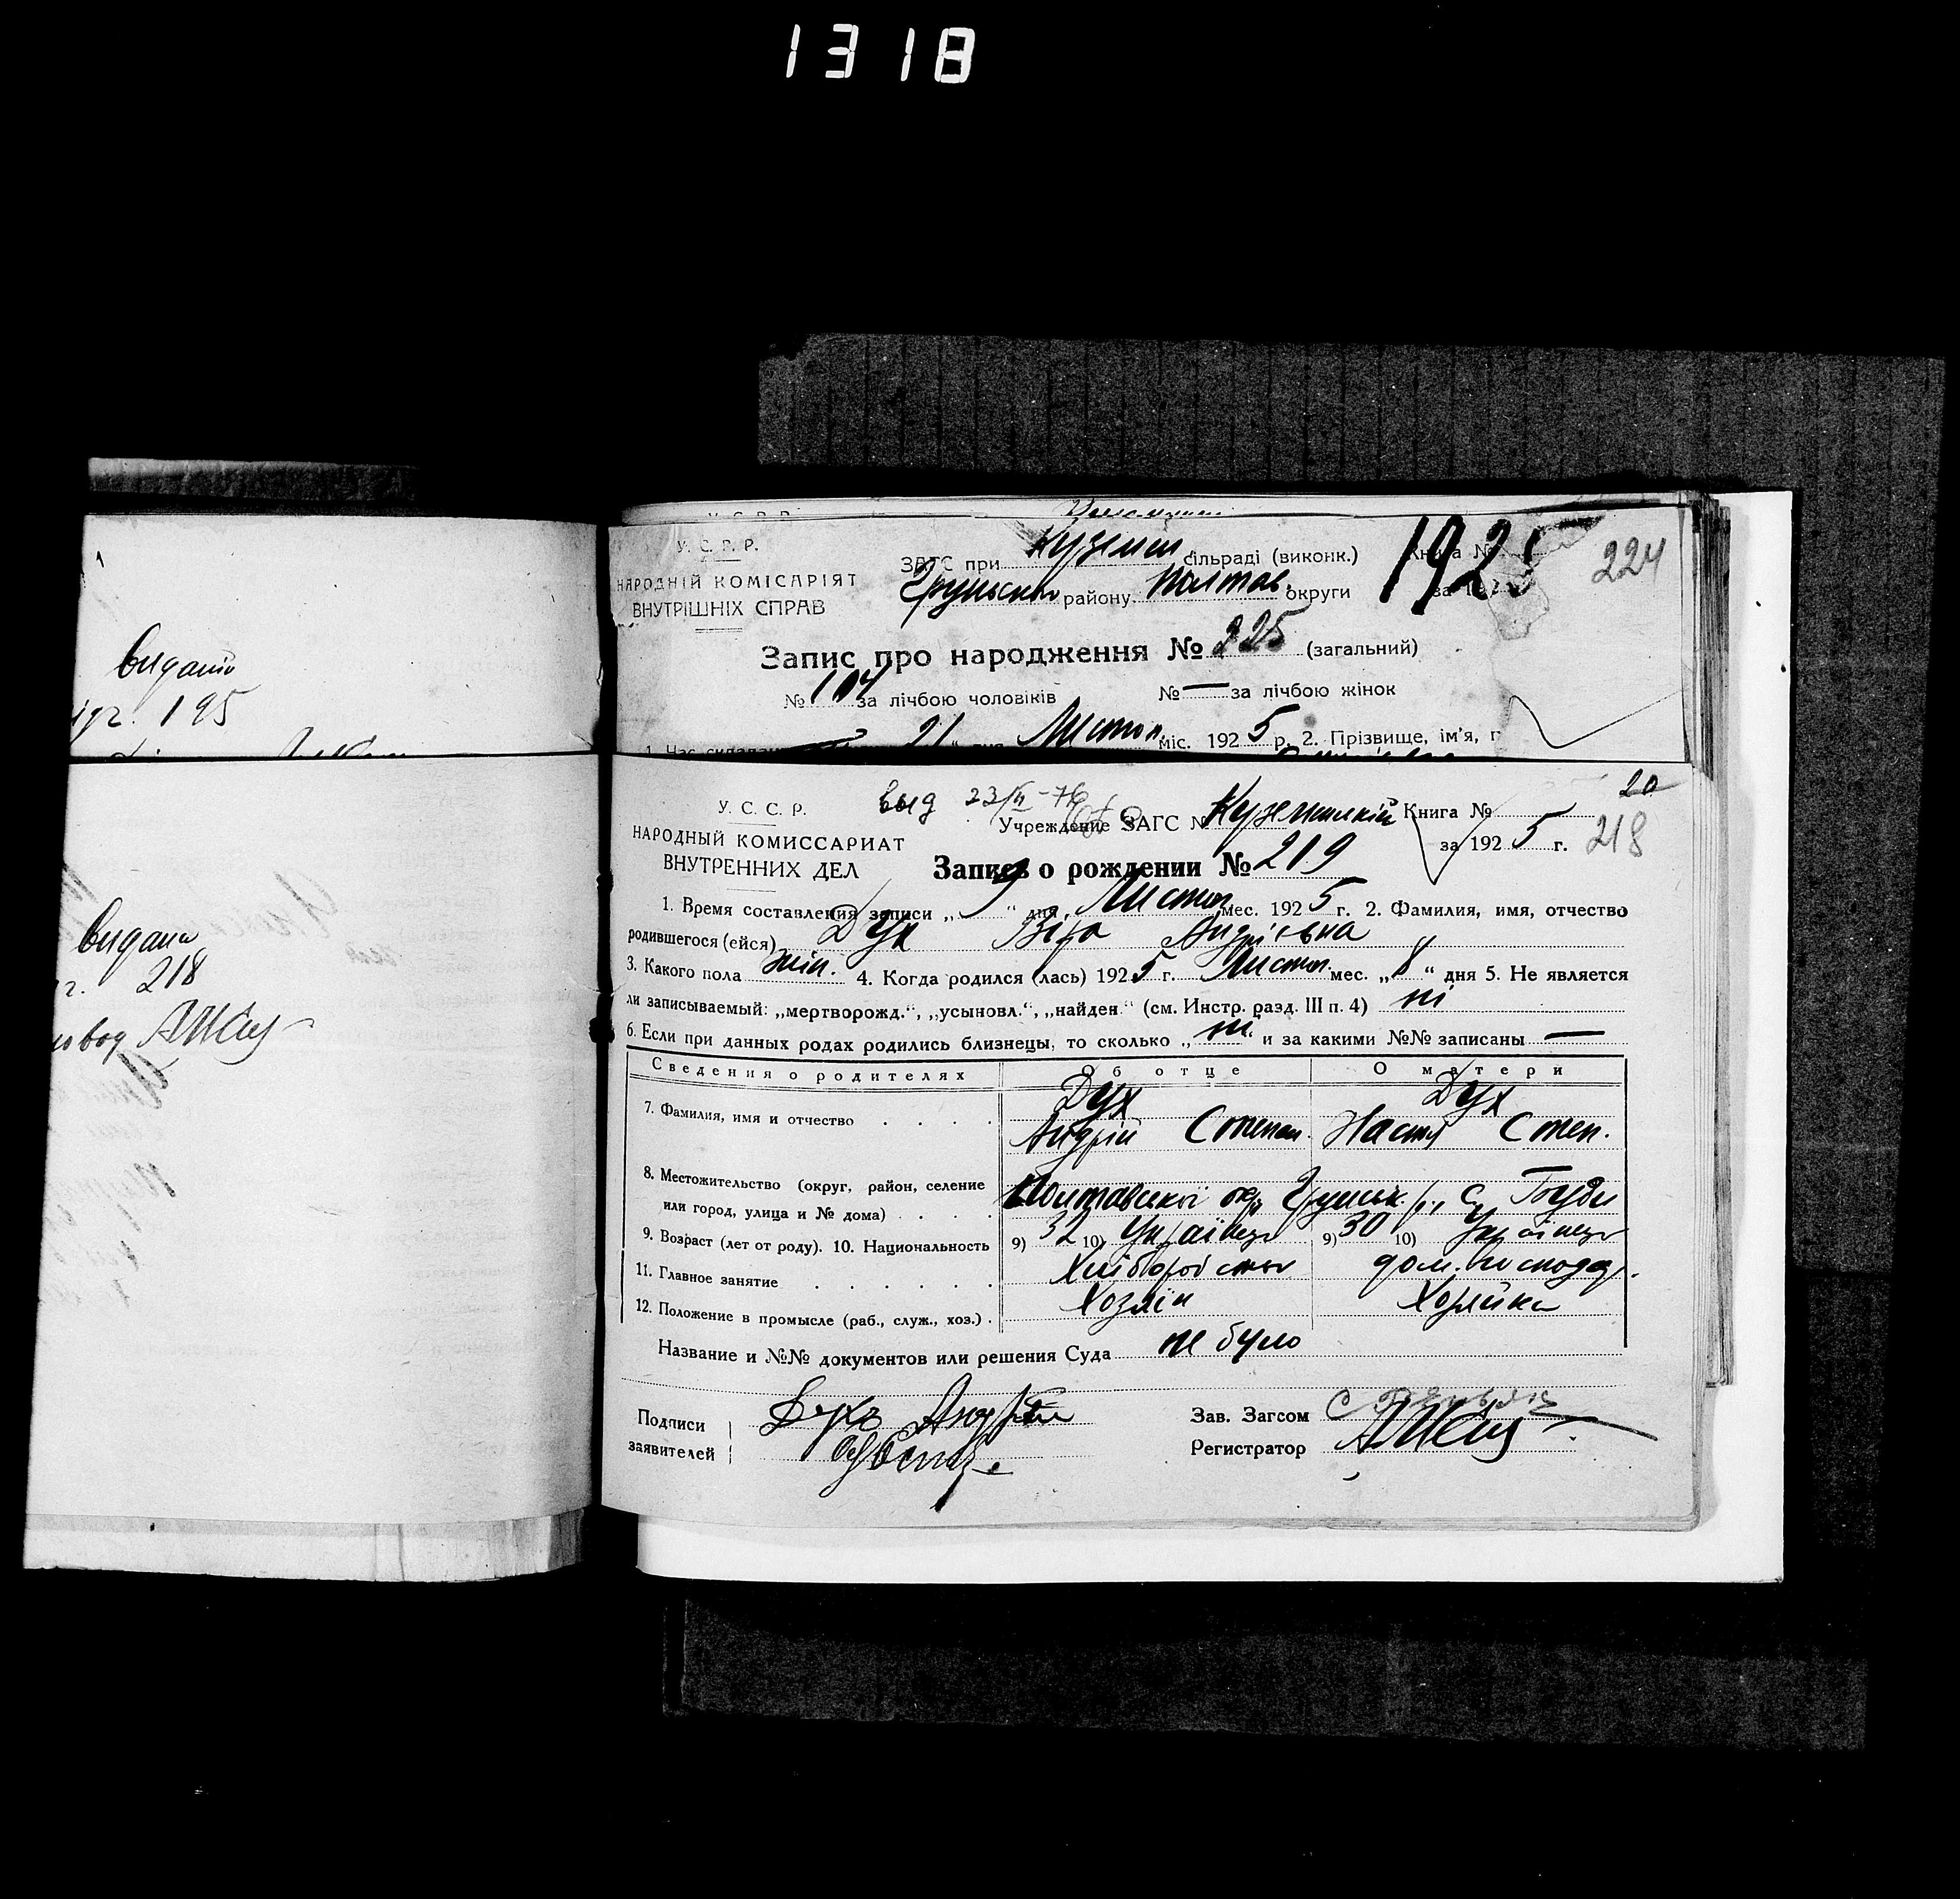 1318
видано
195
У. С. Р. Р.
НАРОДНІЙ КОМІСАРІЯТ
ВНУТРІШНІХ СПРАВ
ЗАГС при Куземин. сільраді (виконк.) Книга №
Грунськ району Полтав. округи 1925 224
Запис про народження № 225 (загальний)
№ 104 за лічбою чоловіків № — за лічбою жінок
21 " дня Листоп. міс. 1925 р. 2. Прізвище, ім'я,
видана
г. 218
У. С. С. Р.
НАРОДНЫЙ КОМИССАРИАТ
ВНУТРЕННИХ ДЕЛ
выд 23
20
Учреждение ЗАГС № Куземинский Книга №
за 1925 г. 218
Запись о рождении № 219
1. Время составления записи „ 9 " дня Листоп мес. 1925 г. 2. Фамилия, имя, отчество
родившегося (ейся) Дух Віра Андріївна
3. Какого пола жін. 4. Когда родился (лась) 1925 г. Листоп. мес. „ 8 " дня 5. Не является
ли записываемый: „мертворожд.", „усыновл.", „найден." (см. Инстр. разд. III п. 4) ні
6. Если при данных родах родились близнецы, то сколько „ ні " и за какими №№ записаны —
Сведения о родителях Об отце О матери
7. Фамилия, имя и отчество Дух Андрій Степан. Дух Настя Степ.
8. Местожительство (округ, район, селение
или город, улица и № дома) Полтавської окр. Грунськ. р., с.
9. Возраст (лет от роду). 10. Национальность 9) 32 10) Українец 9) 30 10) Українец
11. Главное занятие Хліборобство дом. господар.
12. Положение в промысле (раб., служ., хоз.) Хозяін Хозяйка
Название и №№ документов или решения Суда не було
Подписи
заявителей
Духъ Андрей
Зав. Загсом
Регистратор